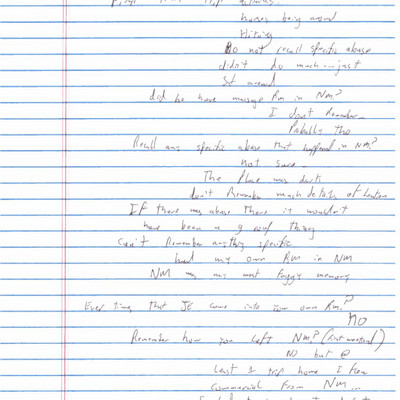 horses being around
Hiking
Do not recall specific abuse
didn't do much - just
St around
did he have massage Rm in NM?
I dont Remember
Probally tho
Recall any specific abuse that happened in NM?
not sure
The Place was dark
don't Remember much details of location
If there was abuse there it wouldn't
have been a g conf thing
Can't Remember anything specific
had my own Rm in NM
NM was my most foggy memory
Ever times that JE came into your own Rm.?
NO
Remember how you left NM? (
NO but @
Least 1 trip home I flew
commercial From NM